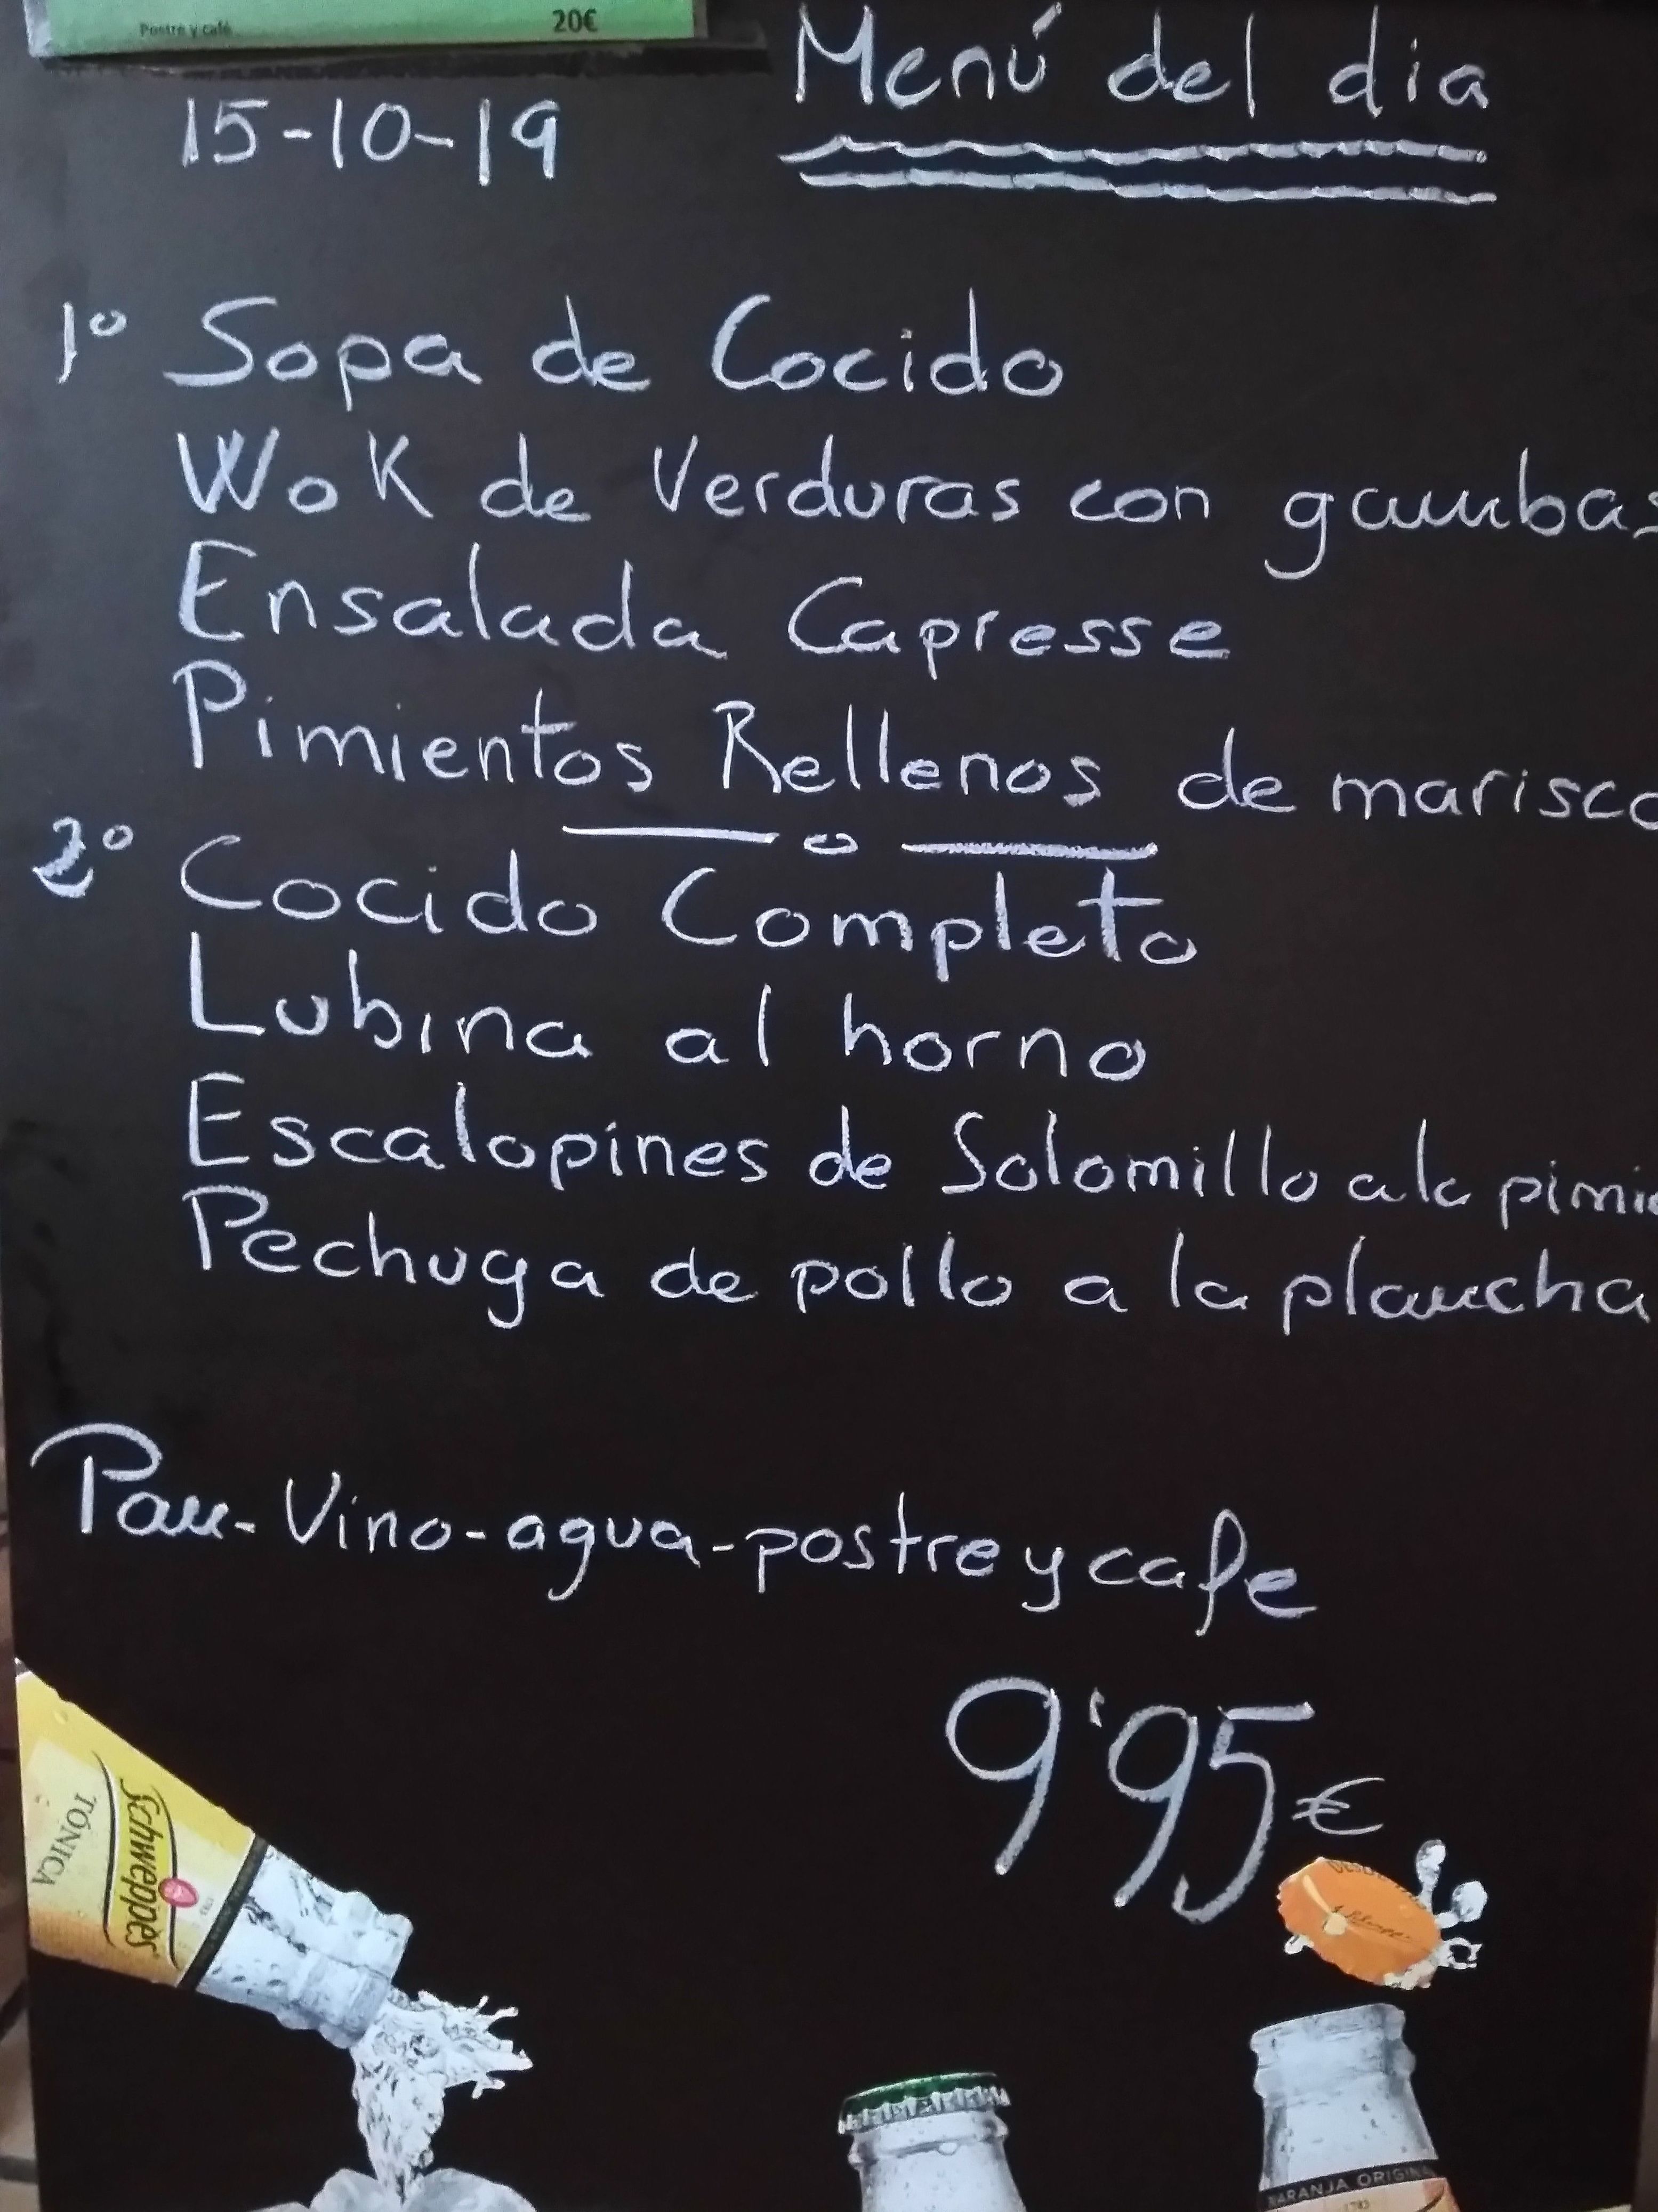 Postre y café 20€
Menú del dia
15-10-19
1º Sopa de Cocido
Wok de Verduras con gambas
Ensalada Capresse
Pimientos Rellenos de marisco
2º Cocido Completo
Lubina al horno
Escalopines de Solomillo a la pimie
Pechuga de pollo a la plancha
Pan-Vino-agua-postre y cafe
9'95€
Schweppes
TÓNICA
NARANJA ORIGINAL
1783